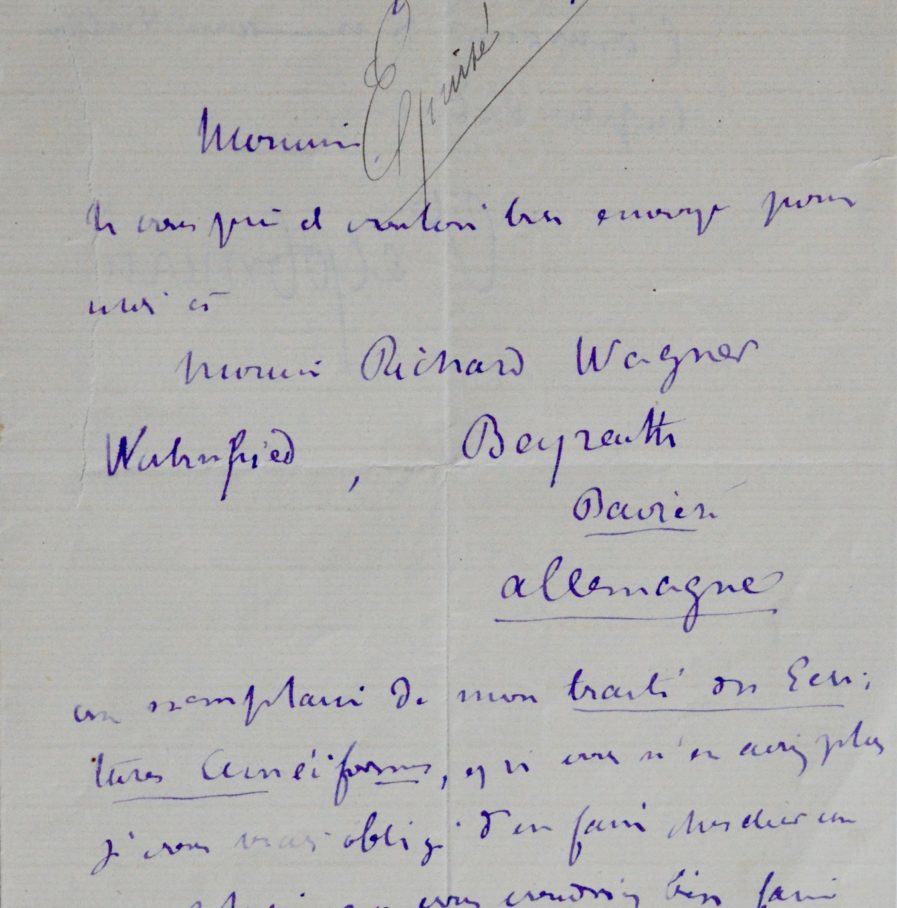 Epuisé
Monsieur
Je vous prie de vouloir bien envoyer pour
moi à
Monsieur Richard Wagner
Wahnfried, Beyreuth
Bavière
Allemagne
un exemplaire de mon traité des Ecri-
tures Cunéiformes, et si vous n'en aviez plus
je vous serais obligé d'en faire chercher un
vous voudriez bien faire